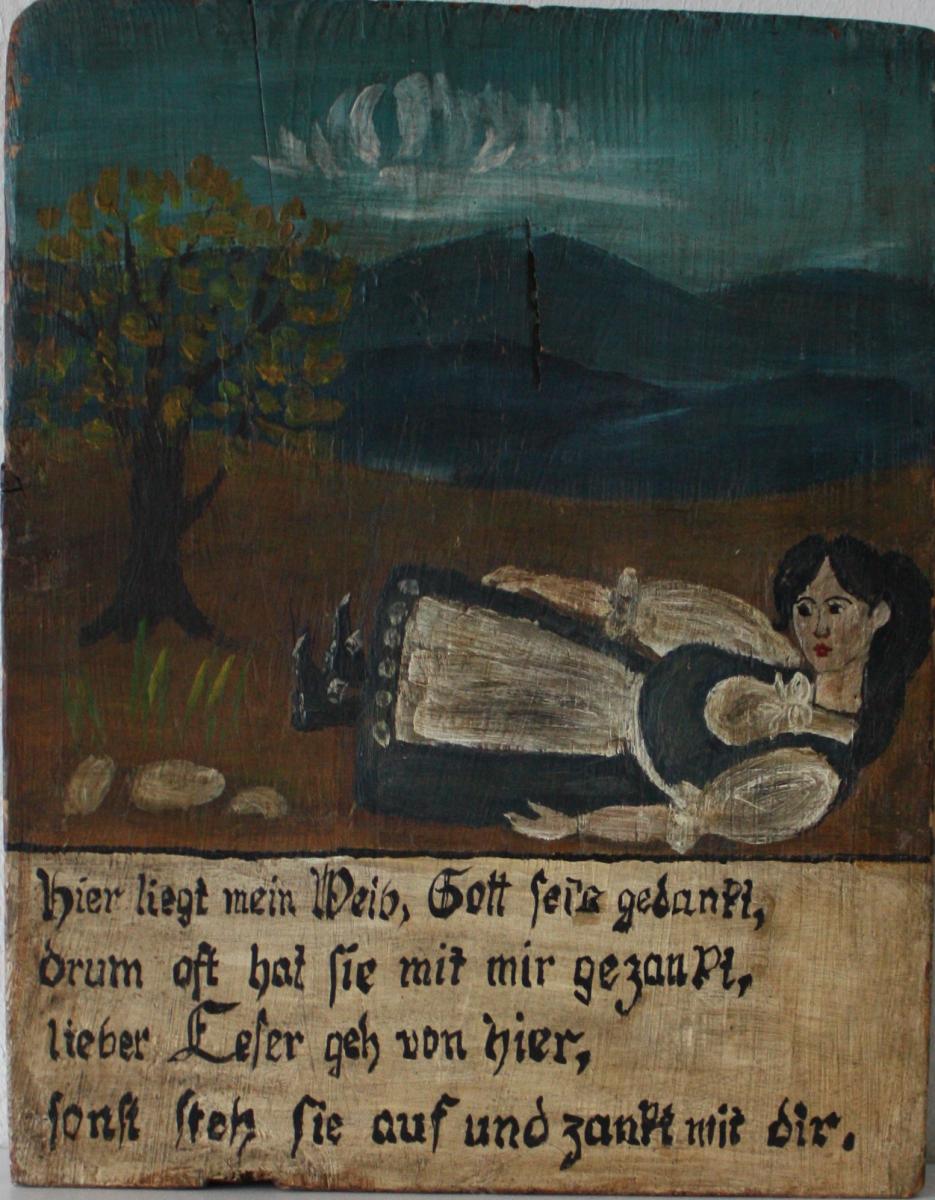 Hier liegt mein Weib, Gott seis gedankt,
drum oft hat sie mit mir gezankt,
lieber Leser geh von hier,
sonst steh sie auf und zankt mit dir.